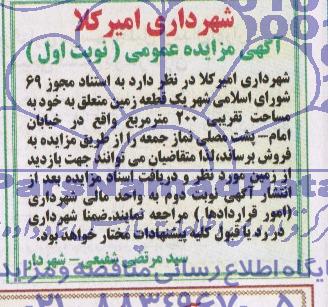 شهرداری امیرکلا
آگهی مزایده عمومی ( نوبت اول )
شهرداری امیرکلا در نظر دارد به استناد مجوز ۶۹
شورای اسلامی شهر یک قطعه زمین متعلق به خود به
مساحت تقریبی ۲۰۰ مترمربع واقع در خیابان
امام - پشت مصلی نماز جمعه را از طریق مزایده به
فروش برساند، لذا متقاضیان می توانند جهت بازدید
از زمین مورد نظر و دریافت اسناد مزایده بعد از
انتشار آگهی نوبت دوم به واحد مالی شهرداری
(امور قراردادها ) مراجعه نمایند.ضمنا شهرداری
در رد یا قبول کلیه پیشنهادات مختار خواهد بود.
سید مرتضی شفیعی - شهردار
ParsNamadData
پایگاه اطلاع رسانی مناقصه و مزایده